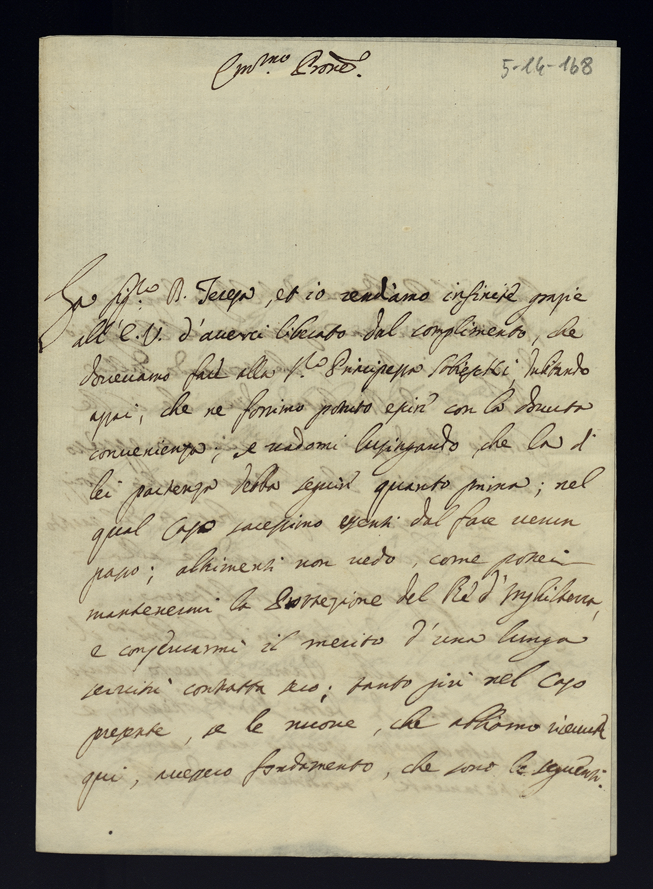 Em.mo Prone.
5-14-168
La Sig.ra D. Teresa, et io rendiamo infinite grazie
all'E.V. d'averci liberato dal complimento, che
dovevamo fare alla S.ra Principessa Sobieski, dubitando
assai, che ne fossimo potuto escir con la dovuta
convenienza; e vadomi lusingando che la di
lei partenza debba seguir quanto prima; nel
qual caso saressimo esenti dal fare verun
passo; altrimenti non vedo, come potrei
mantenermi la Protezione del Rè d'Inghilterra,
e conservarmi il merito d'una lunga
servitù contratta seco; tanto più nel caso
presente, se le nuove, che abbiamo ricevute
qui, avessero fondamento, che sono le seguenti.